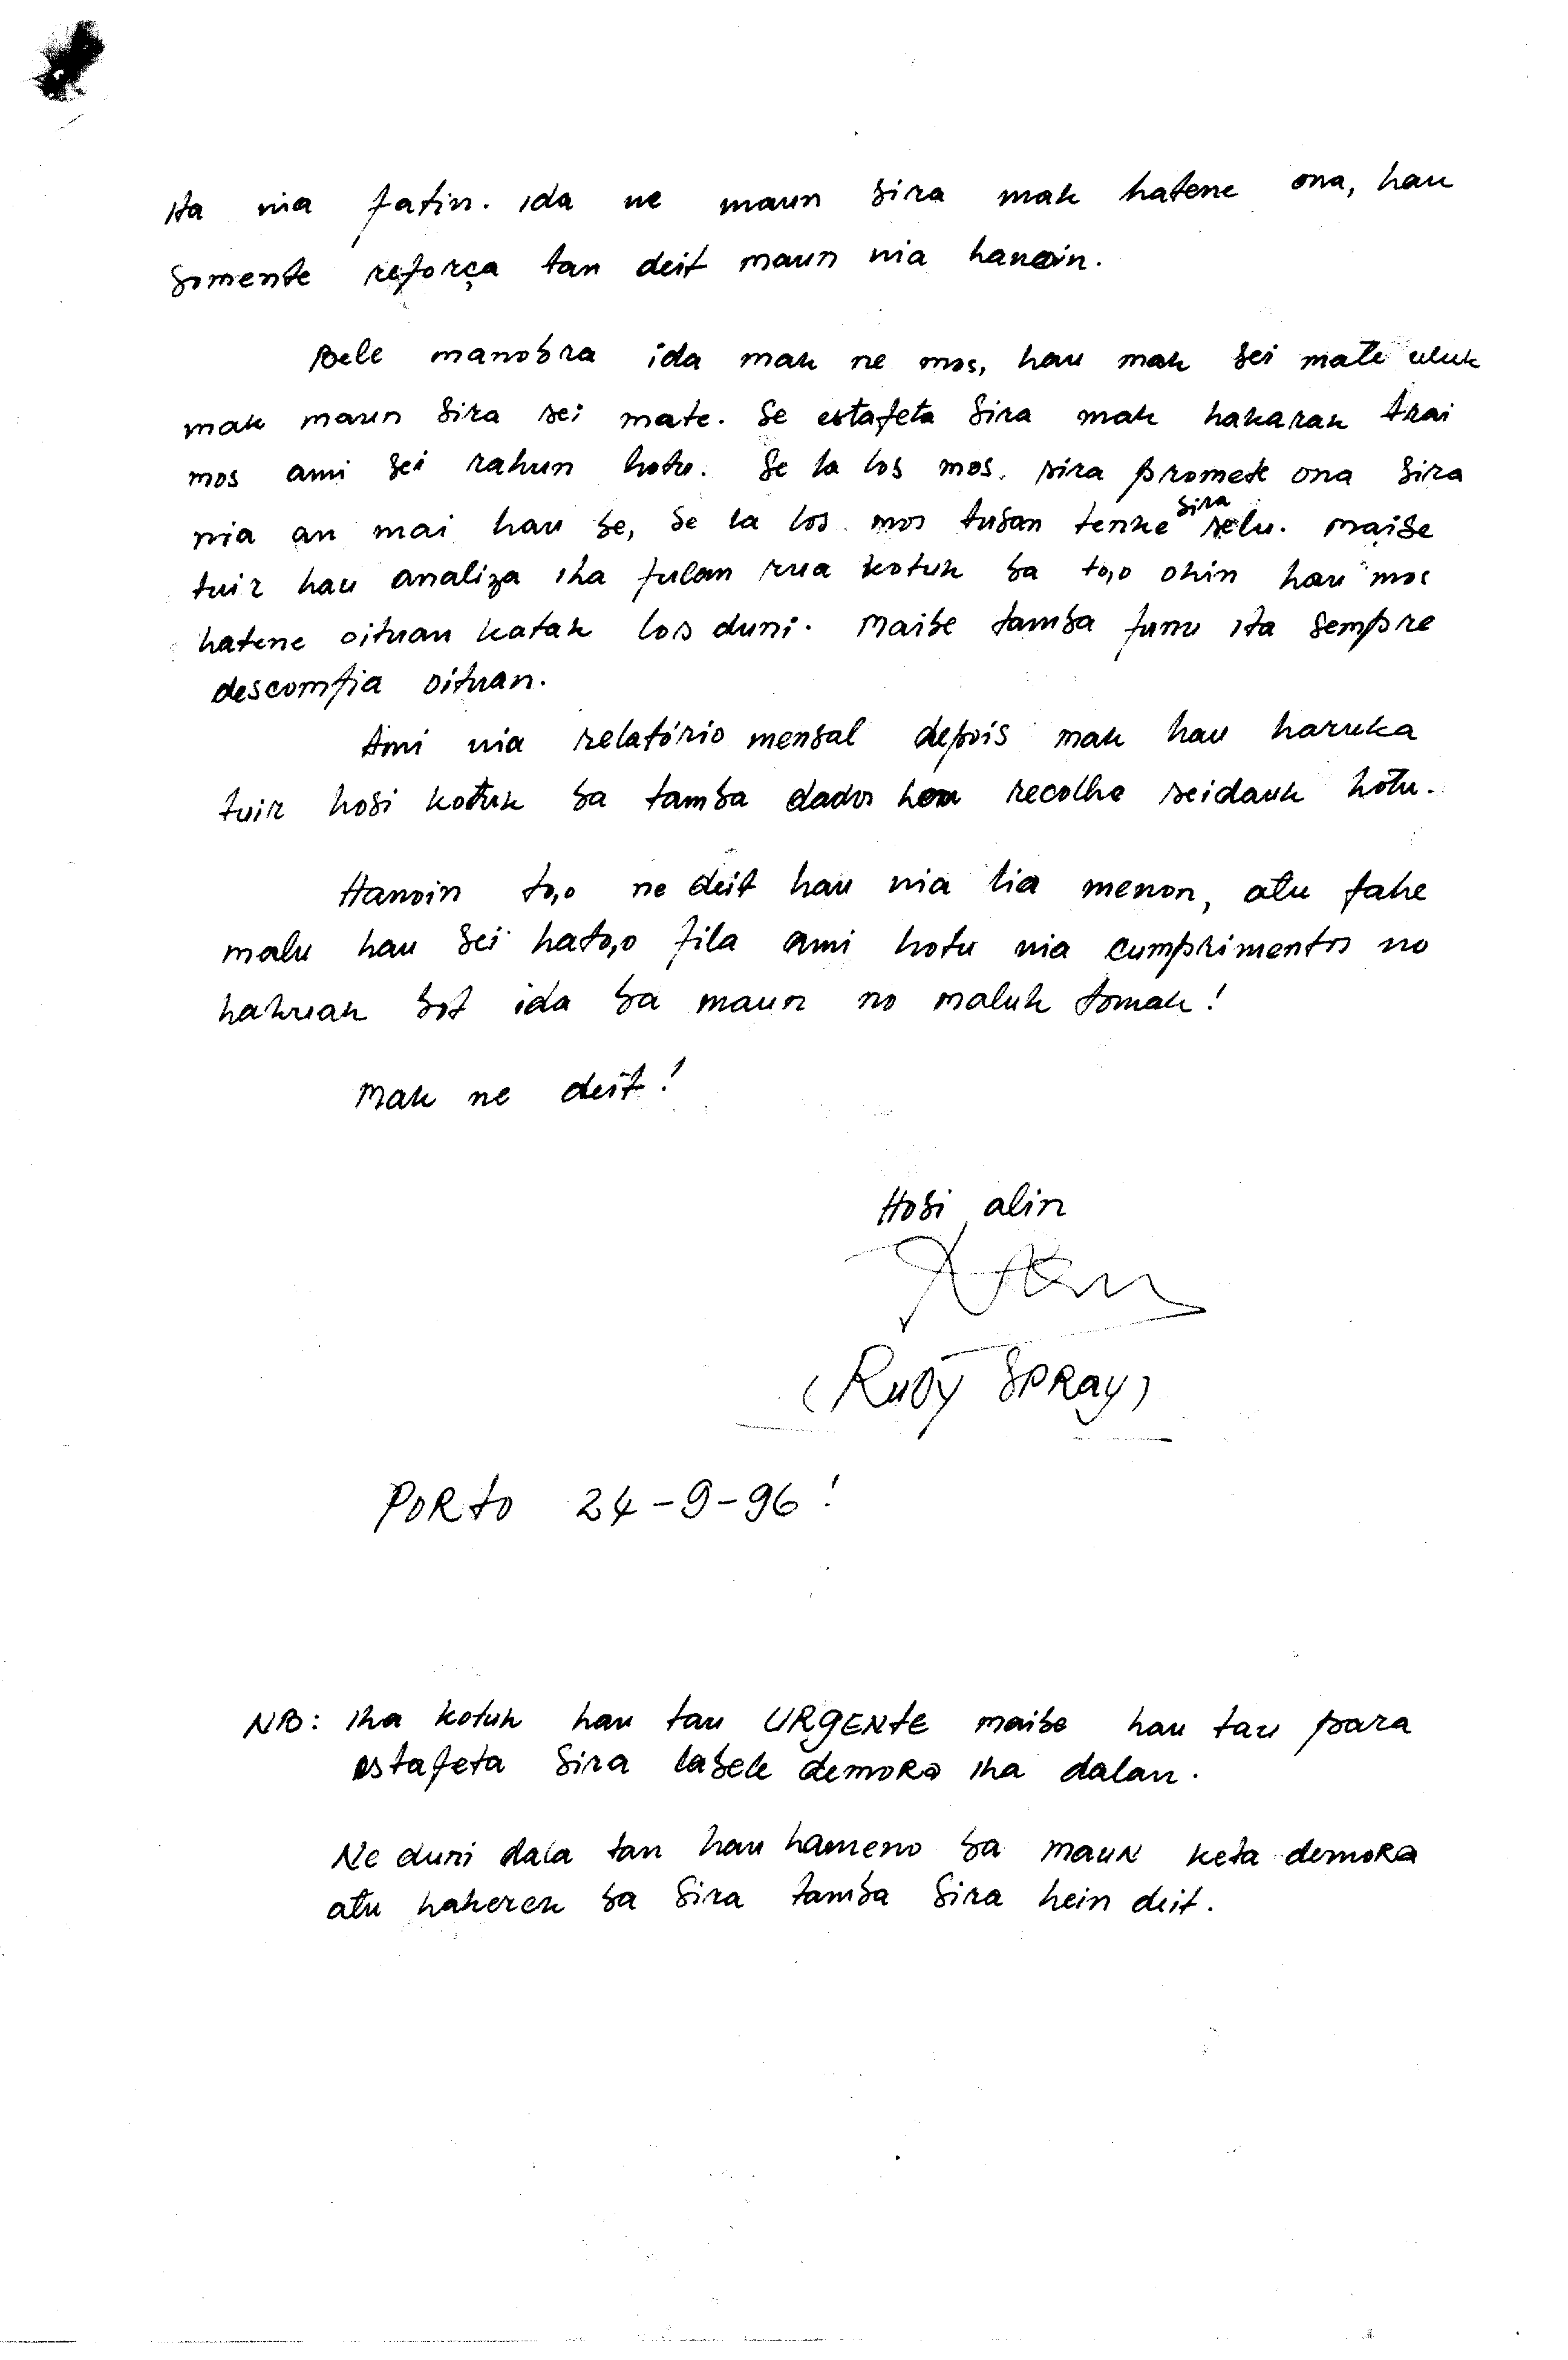 ita nia fatin. ida ne maun sira mak hatene ona, hau
somente reforça tan deit maun nia hanoin.
Bele manobra ida mak ne mos, hau mak sei mate uluk
mak maun sira sei mate. Se estafeta sira mak hakarak trai
mos ami sei rahun hotu. Se la los mos. sira promete ona sira
nia an mai hau be, se la los mos tusan tenke sira selu. Maibe
tuir hau analiza iha fulan rua kotuk ba to,o ohin hau mos
hatene oituan katak los duni. Maibe tamba funu ita sempre
descomfia oituan.
Ami nia relatório mensal depois mak hau haruka
tuir hosi kotuk ba tamba dados hau recolhe seidauk hotu.
Hanoin to,o ne deit hau nia lia menon, atu fahe
malu hau sei hato,o fila ami hotu nia cumprimentos no
hakuak bot ida ba maun no maluk tomak!
Mak ne deit!
Hosi alin
(RUDY SPRAY)
PORTO 24-9-96!
NB: Iha kotuk hau tau URGENTE maibe hau tau para
estafeta sira labele demora iha dalan.
Ne duni dala tan hau hameno ba maun keta demora
atu hakerek ba sira tamba sira hein deit.